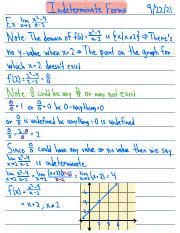 Indeterminate Forms 9/22/21
Ex lim x→2 x²-4/x-2
Note The domain of f(x) = x²-4/x-2 is {x|x≠2} ⇒ There's
no y-value when x=2 ⇒ The point on the graph for
which x=2 doesn't exist
f(2) = 2²-4/2-2 = 0/0
Note 0/0 could be any # or may not exist
0/0 = 0 or 0/0 = 0 b/c 0·anything=0
or 0/0 is undefined b/c anything÷0 is undefined
Since 0/0 could have any value or no value then we say
0/0 is indeterminate
lim x→2 x²-4/x-2 = lim x→2 (x+2)(x-2)/x-2 = lim x→2 (x+2) = 4
f(x) = x²-4/x-2
= x+2, x≠2